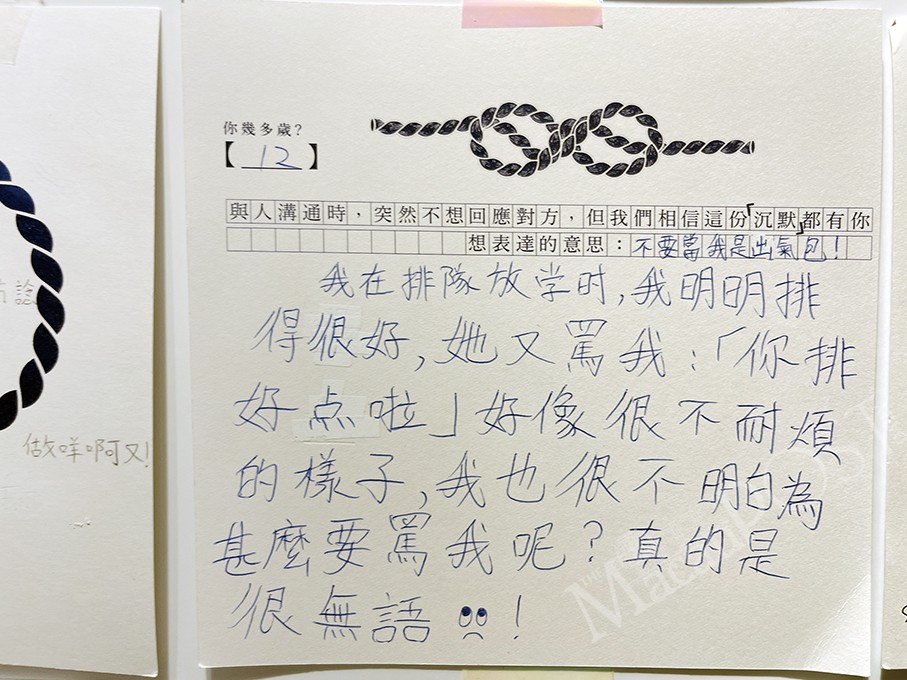 你幾多歲?
【12】
與人溝通時，突然不想回應對方，但我們相信這份「沉默」都有你
想表達的意思：不要當我是出氣包！
我在排隊放学时，我明明排
得很好，她又罵我：「你排
好点啦」好像很不耐煩
的樣子，我也很不明白為
甚麼要罵我呢？真的是
很無語！
做咩啊又!